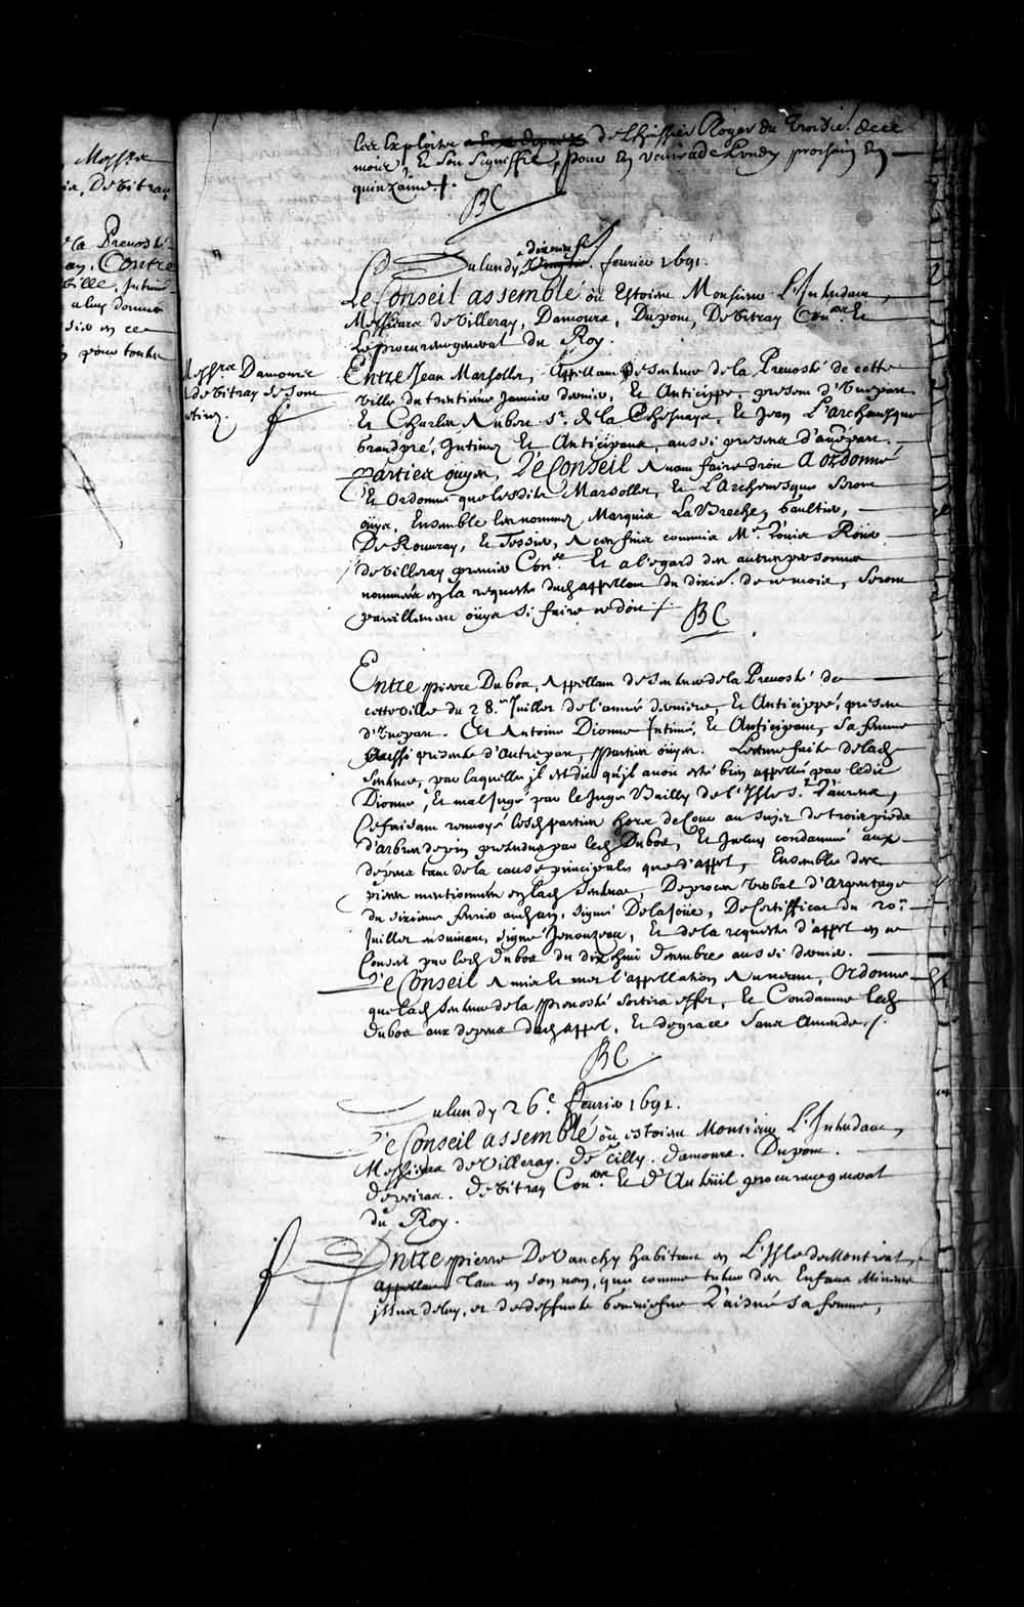 Mess.rs
De Vitray
la Prevosté
Contre
Ville, Intimé
a luy donné
six en ce
pour toute
les Exploits de L'huissier Roger du Troisie. de ce
mois, Et son signiffié, pour En venir a de Lundy prochain En
quinzaine ./.
BC
Du lundy dixneufe. fevrier 1691.
Le Conseil assemblé ou Estoient Monsieur L'Intendant,
Messieurs de Villeray, Damours, Dupont, De Vitray Con.ers Et
Le procureur general du Roy.
Mess.rs Damours
de Vitray se sont
retirez.
Entre Jean Marsollet, Appellant de sentence de la Prevosté de cette
ville du trentieme Janvier dernier, Et Anticippé, present d'Une part
Et Charles Aubert S.r de la Chesnaye, Et Jean L'archevesque
Grandpré, Intimez Et Anticipans, aussi presens d'autre part.
parties ouyes, Le Conseil Avant faire droit A ordonné
Et Ordonne que lesdits Marsollet, Et L'archevesque seront
ouys, Ensemble les nommez Marquis La Breche, Gaultier,
De Rouvray, Et Tessier, A ces fins commis M.e Louis Roüer
de Villeray premier Con.er Et a l'egard des autres personnes
nommées en la requeste dud. appellant du dixie. de ce mois, seront
pareillement oüys si faire se doit ./.
BC
Entre pierre Dubos, Appellant de sentence de la Prevosté de
cette ville du 28.e Juillet de l'année derniere, Et Anticippé, present
d'Une part. Et Antoine Dionne Intimé, Et Anticipant, sa femme
aussi presente d'autre part, parties ouyes. Lecture faite de lad.
sentence, par laquelle jl est dit qu'jl avoit esté bien appellé par ledit
Dionne, Et mal Jugé par le Juge Bailly de l'Isle S.t Laurens,
Ce faisant renvoyé lesd. parties hors de Cour au sujet de trois pieds
d'arbres de pin pretendus par led. Dubos, Et Jceluy condamné aux
depens tant de la cause principale que d'appel, Ensemble des
pieces mentionnées en lad. sentence, De procez Verbal d'Arpentage
du sixieme fevrier aud. an, signé De la Joüe, De Certifficat du 20.e
Juillet ensuivant, signé Jenouzeau, Et de la requeste d'appel en ce
Conseil par led. Dubos du dix huit Decembre aussi dernier.
Le Conseil A mis Et met l'appellation Au neant, Ordonne
que lad. sentence de la prevosté sortira effet, Et Condamne led.
Dubos aux depens dud. appel, Et de grace sans Amende ./.
BC
Du lundy 26.e fevrier 1691.
Le Conseil assemblé ou estoient Monsieur L'Intendant,
Messieurs de Villeray. de Tilly. damours. Dupont.
depeiras. de Vitray Con.ers Et d'Auteüil procureur general
du Roy.
Entre pierre De Vanchy habitant en L'Isle de Montreal,
appellant Tant en son nom, que comme tuteur des Enfans Mineurs
jssus de luy, et de deffunte Geneviefve Laisné sa femme,